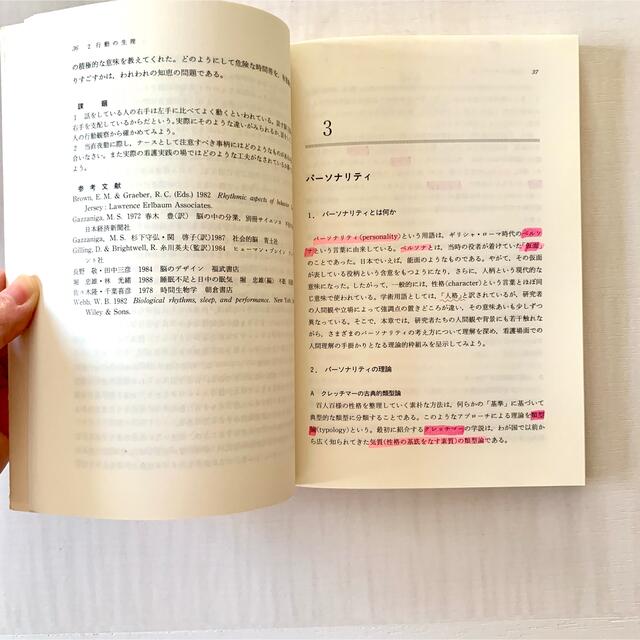 36 2 行動の生理
の積極的な意味を教えてくれた。どのようにして危険な時間帯を,
りすごすかは,われわれの知恵の問題である。
課 題
1 話をしている人の右手は左手に比べてよく動くといわれている。
右手を支配しているからだという。実際にそのような違いがみられるか,
人の行動観察から確かめてみよう。
2 当直夜勤に際し,ナースとして注意すべき事柄にはどのようなもの
合いなさい。また実際の看護実践の場ではどのような工夫がなされている
参 考 文 献
Brown, E. M. & Graeber, R. C. (Eds.) 1982 Rhythmic aspects of behavior
Jersey: Lawrence Erlbaum Associates.
Gazzaniga, M. S. 1972 春木 豊(訳) 脳の中の分業, 別冊サイエンス
日本経済新聞社
Gazzaniga, M. S. 杉下守弘・関 啓子(訳)1987 社会的脳 青土社
Gilling, D. & Brightwell, R. 糸川英夫(監訳)1984 ヒューマン・ブレイン
ント社
長野 敬・田中三彦 1984 脳のデザイン 福武書店
堀 忠雄・林 光緒 1988 睡眠不足と日中の眠気 堀 忠雄(編)
佐々木隆・千葉喜彦 1978 時間生物学 朝倉書店
Webb, W. B. 1982 Biological rhythms, sleep, and performance. New York
Wiley & Sons.
37
3
パーソナリティ
1. パーソナリティとは何か
パーソナリティ(personality)という用語は,ギリシャ・ローマ時代のペルソ
ナという言葉に由来している。ペルソナとは,当時の役者が着けていた「仮面」
のことであった。日本でいえば,能面のようなものである。やがて,その仮面
が表している役柄という含意をもつようになり,さらに,人柄という現代的な
意味になった。したがって,一般的には,性格(character)という言葉とほぼ同
じ意味で使われている。学術用語としては,「人格」と訳されているが,研究者
の人間観や立場によって強調点の置きどころが違い,その意味あいも少しずつ
異なっている。そこで,本章では,研究者たちの人間観や背景にも若干触れな
がら,さまざまのパーソナリティの考え方について理解を深め,看護場面での
人間理解の手掛かりとなる理論的枠組みを呈示してみよう。
2. パーソナリティの理論
A クレッチマーの古典的類型論
百人百様の性格を整理していく素朴な方法は,何らかの「基準」に基づいて
典型的な類型に分類することである。このようなアプローチによる理論を類型
論(typology)という。最初に紹介するクレッチマーの学説は,わが国で以前か
ら広く知られてきた気質(性格の基底をなす素質)の類型論である。